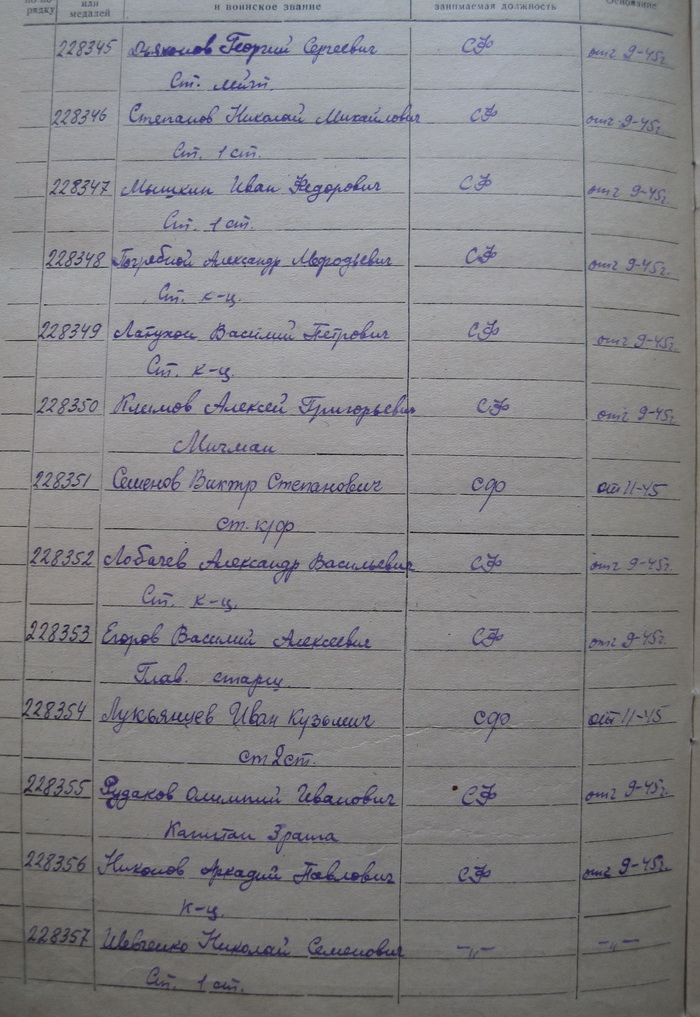 по по- или и воинское звание занимаемая должность Основание
рядку медалей
228345 Дьяконов Георгий Сергеевич СФ отг 9-45г.
Ст. лейт.
228346 Степанов Николай Михайлович СФ отг 9-45г.
Ст. 1 ст.
228347 Мышкин Иван Федорович СФ отг 9-45г.
Ст. 1 ст.
228348 Погребной Александр СФ отг 9-45г.
Ст. к-ц.
228349 Латухов Василий Петрович СФ отг 9-45г.
Ст. к-ц.
228350 Климов Алексей Григорьевич СФ отг 9-45г.
Мичман
228351 Семенов Виктр Степанович сф от 11-45
ст. к/ф
228352 Лобачев Александр Васильевич СФ отг 9-45г.
Ст. к-ц.
228353 Егоров Василий Алексеевич СФ отг 9-45г.
Глав. старш.
228354 Лукьянцев Иван Кузьмич сф от 11-45
ст 2 ст.
228355 Рудаков Олимпий Иванович СФ отг 9-45г.
Капитан 3 ранга
228356 Никонов Аркадий Павлович СФ отг 9-45г.
к-ц.
228357 Шевченко Николай Семенович —„— —„—
Ст. 1 ст.